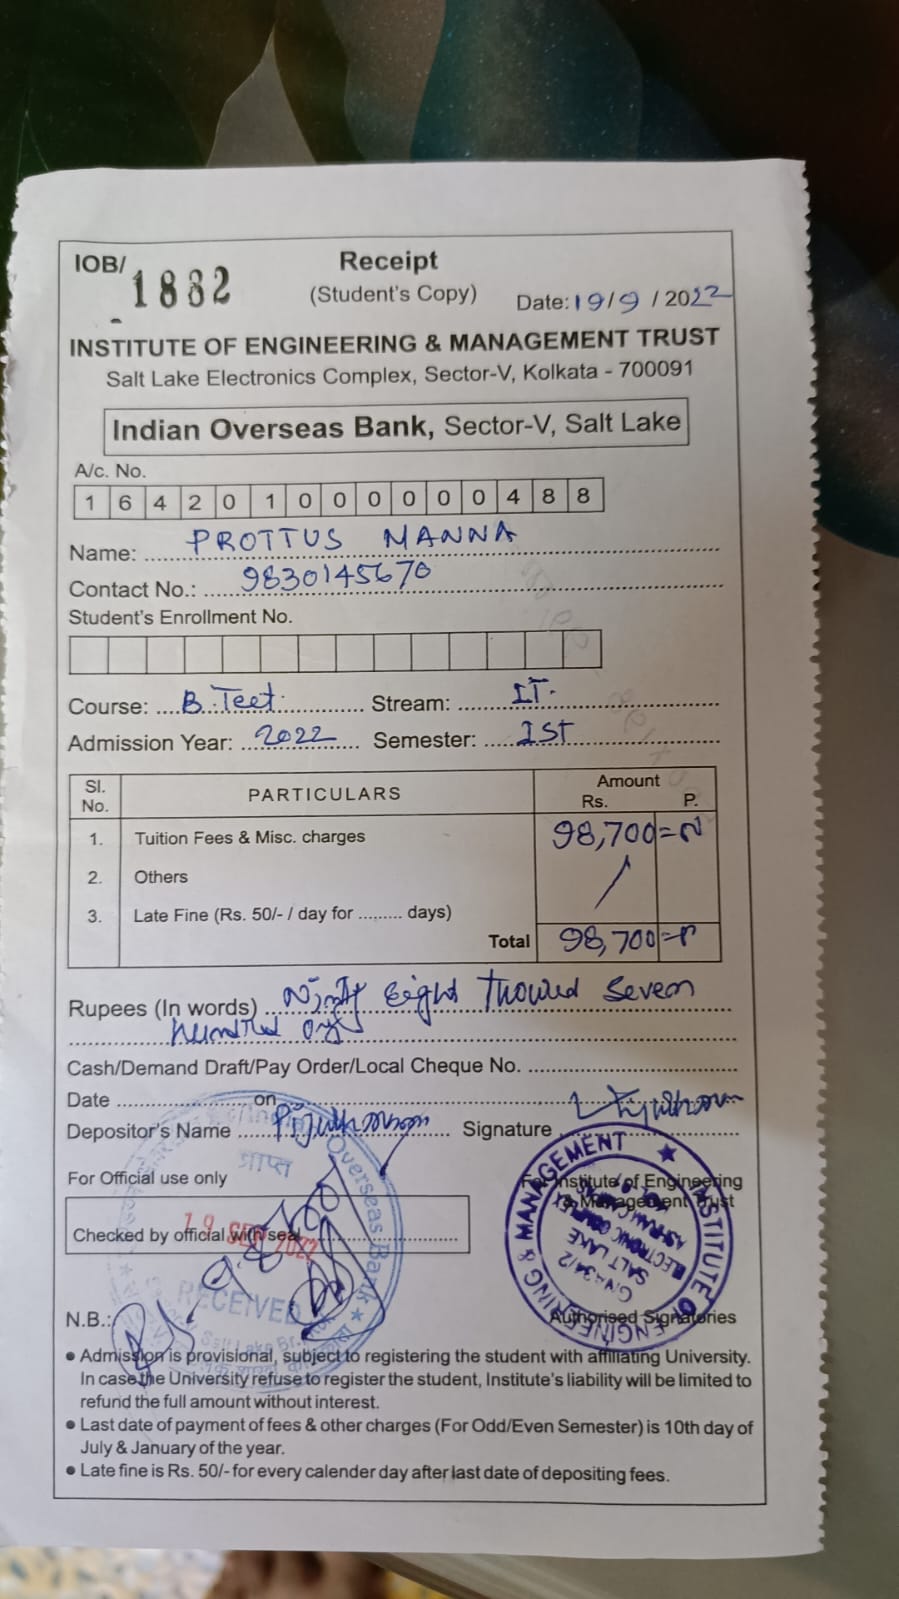 IOB/ 1882
Receipt
(Student's Copy)
Date: 19/9/2022
INSTITUTE OF ENGINEERING & MANAGEMENT TRUST
Salt Lake Electronics Complex, Sector-V, Kolkata - 700091
Indian Overseas Bank, Sector-V, Salt Lake
A/c. No.
1 6 4 2 0 1 0 0 0 0 0 0 4 8 8
Name: PROTTUS MANNA
Contact No.: 9830145670
Student's Enrollment No.
Course: B.Tect. Stream: IT.
Admission Year: 2022 Semester: 1ST
Sl. No. PARTICULARS Amount Rs. P.
1. Tuition Fees & Misc. charges 98,700=
2. Others
3. Late Fine (Rs. 50/- / day for ......... days)
Total 98,700=
Rupees (In words) Ninty Eight Thousd Seven
hundred
Cash/Demand Draft/Pay Order/Local Cheque No.
Date on
Depositor's Name Signature
For Official use only
For Institute of Engineering
& Management Trust
Checked by official with seal
19 SEP 2022
प्राप्त
Overseas Bank
RECEIVED
INSTITUTE OF ENGINEERING & MANAGEMENT
SALT LAKE
N.B.:
Authorised Signatories
• Admission is provisional, subject to registering the student with affiliating University.
In case the University refuse to register the student, Institute's liability will be limited to
refund the full amount without interest.
• Last date of payment of fees & other charges (For Odd/Even Semester) is 10th day of
July & January of the year.
• Late fine is Rs. 50/- for every calender day after last date of depositing fees.